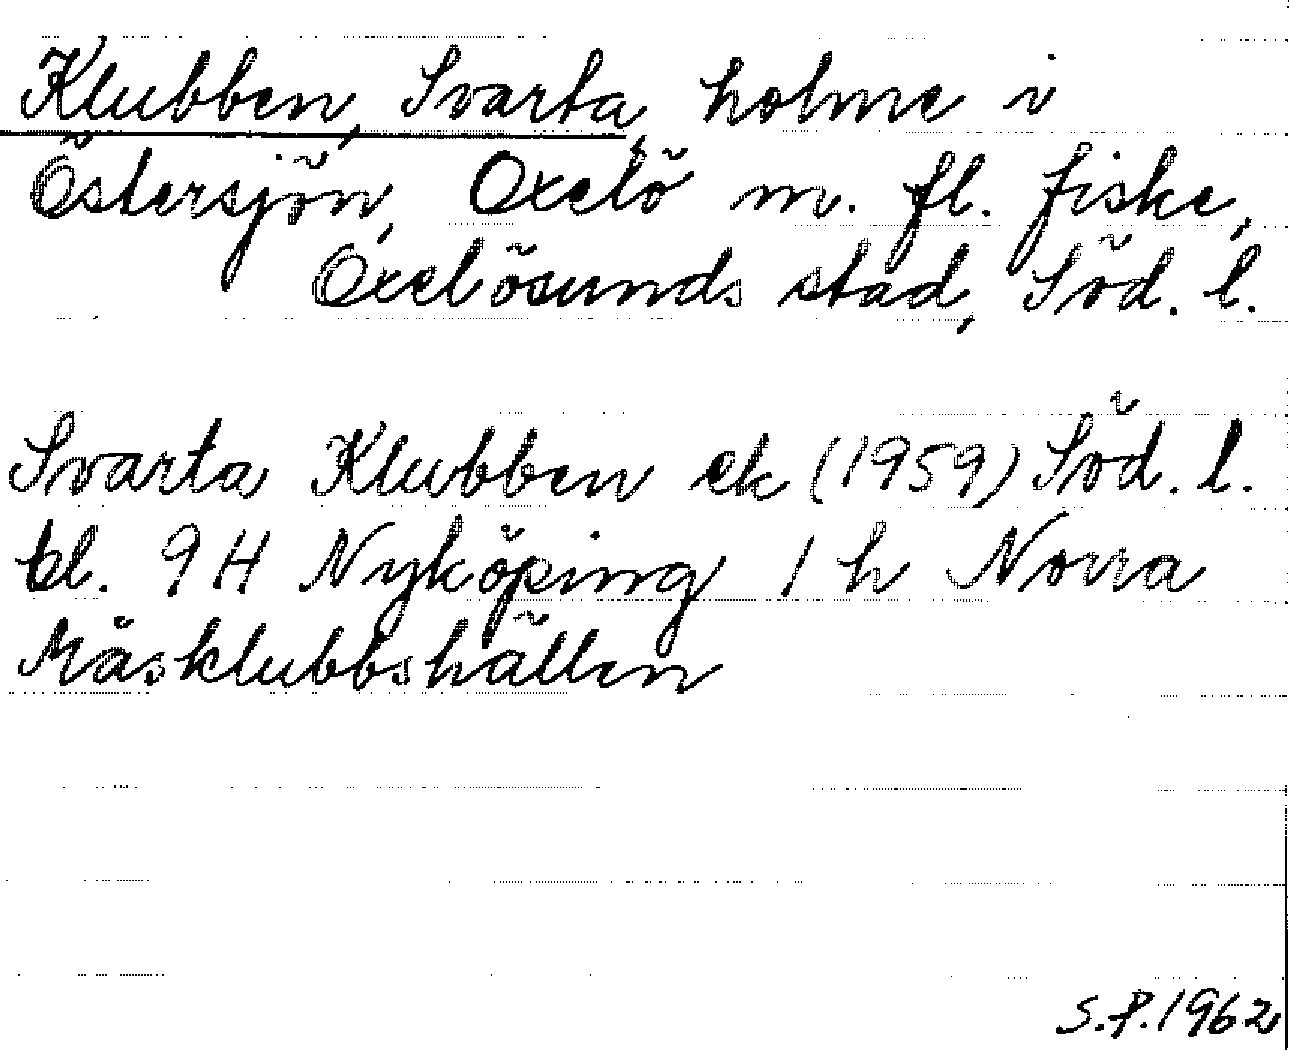 Klubben, Svarta, holme i
Östersjön, Oxelö m. fl. fiske,
Oxelösunds stad, Söd. l.
Svarta Klubben ek (1959) Söd. l.
bl. 9 H Nyköping 1 h Norra
Måsklubbshällen
S.P. 1962